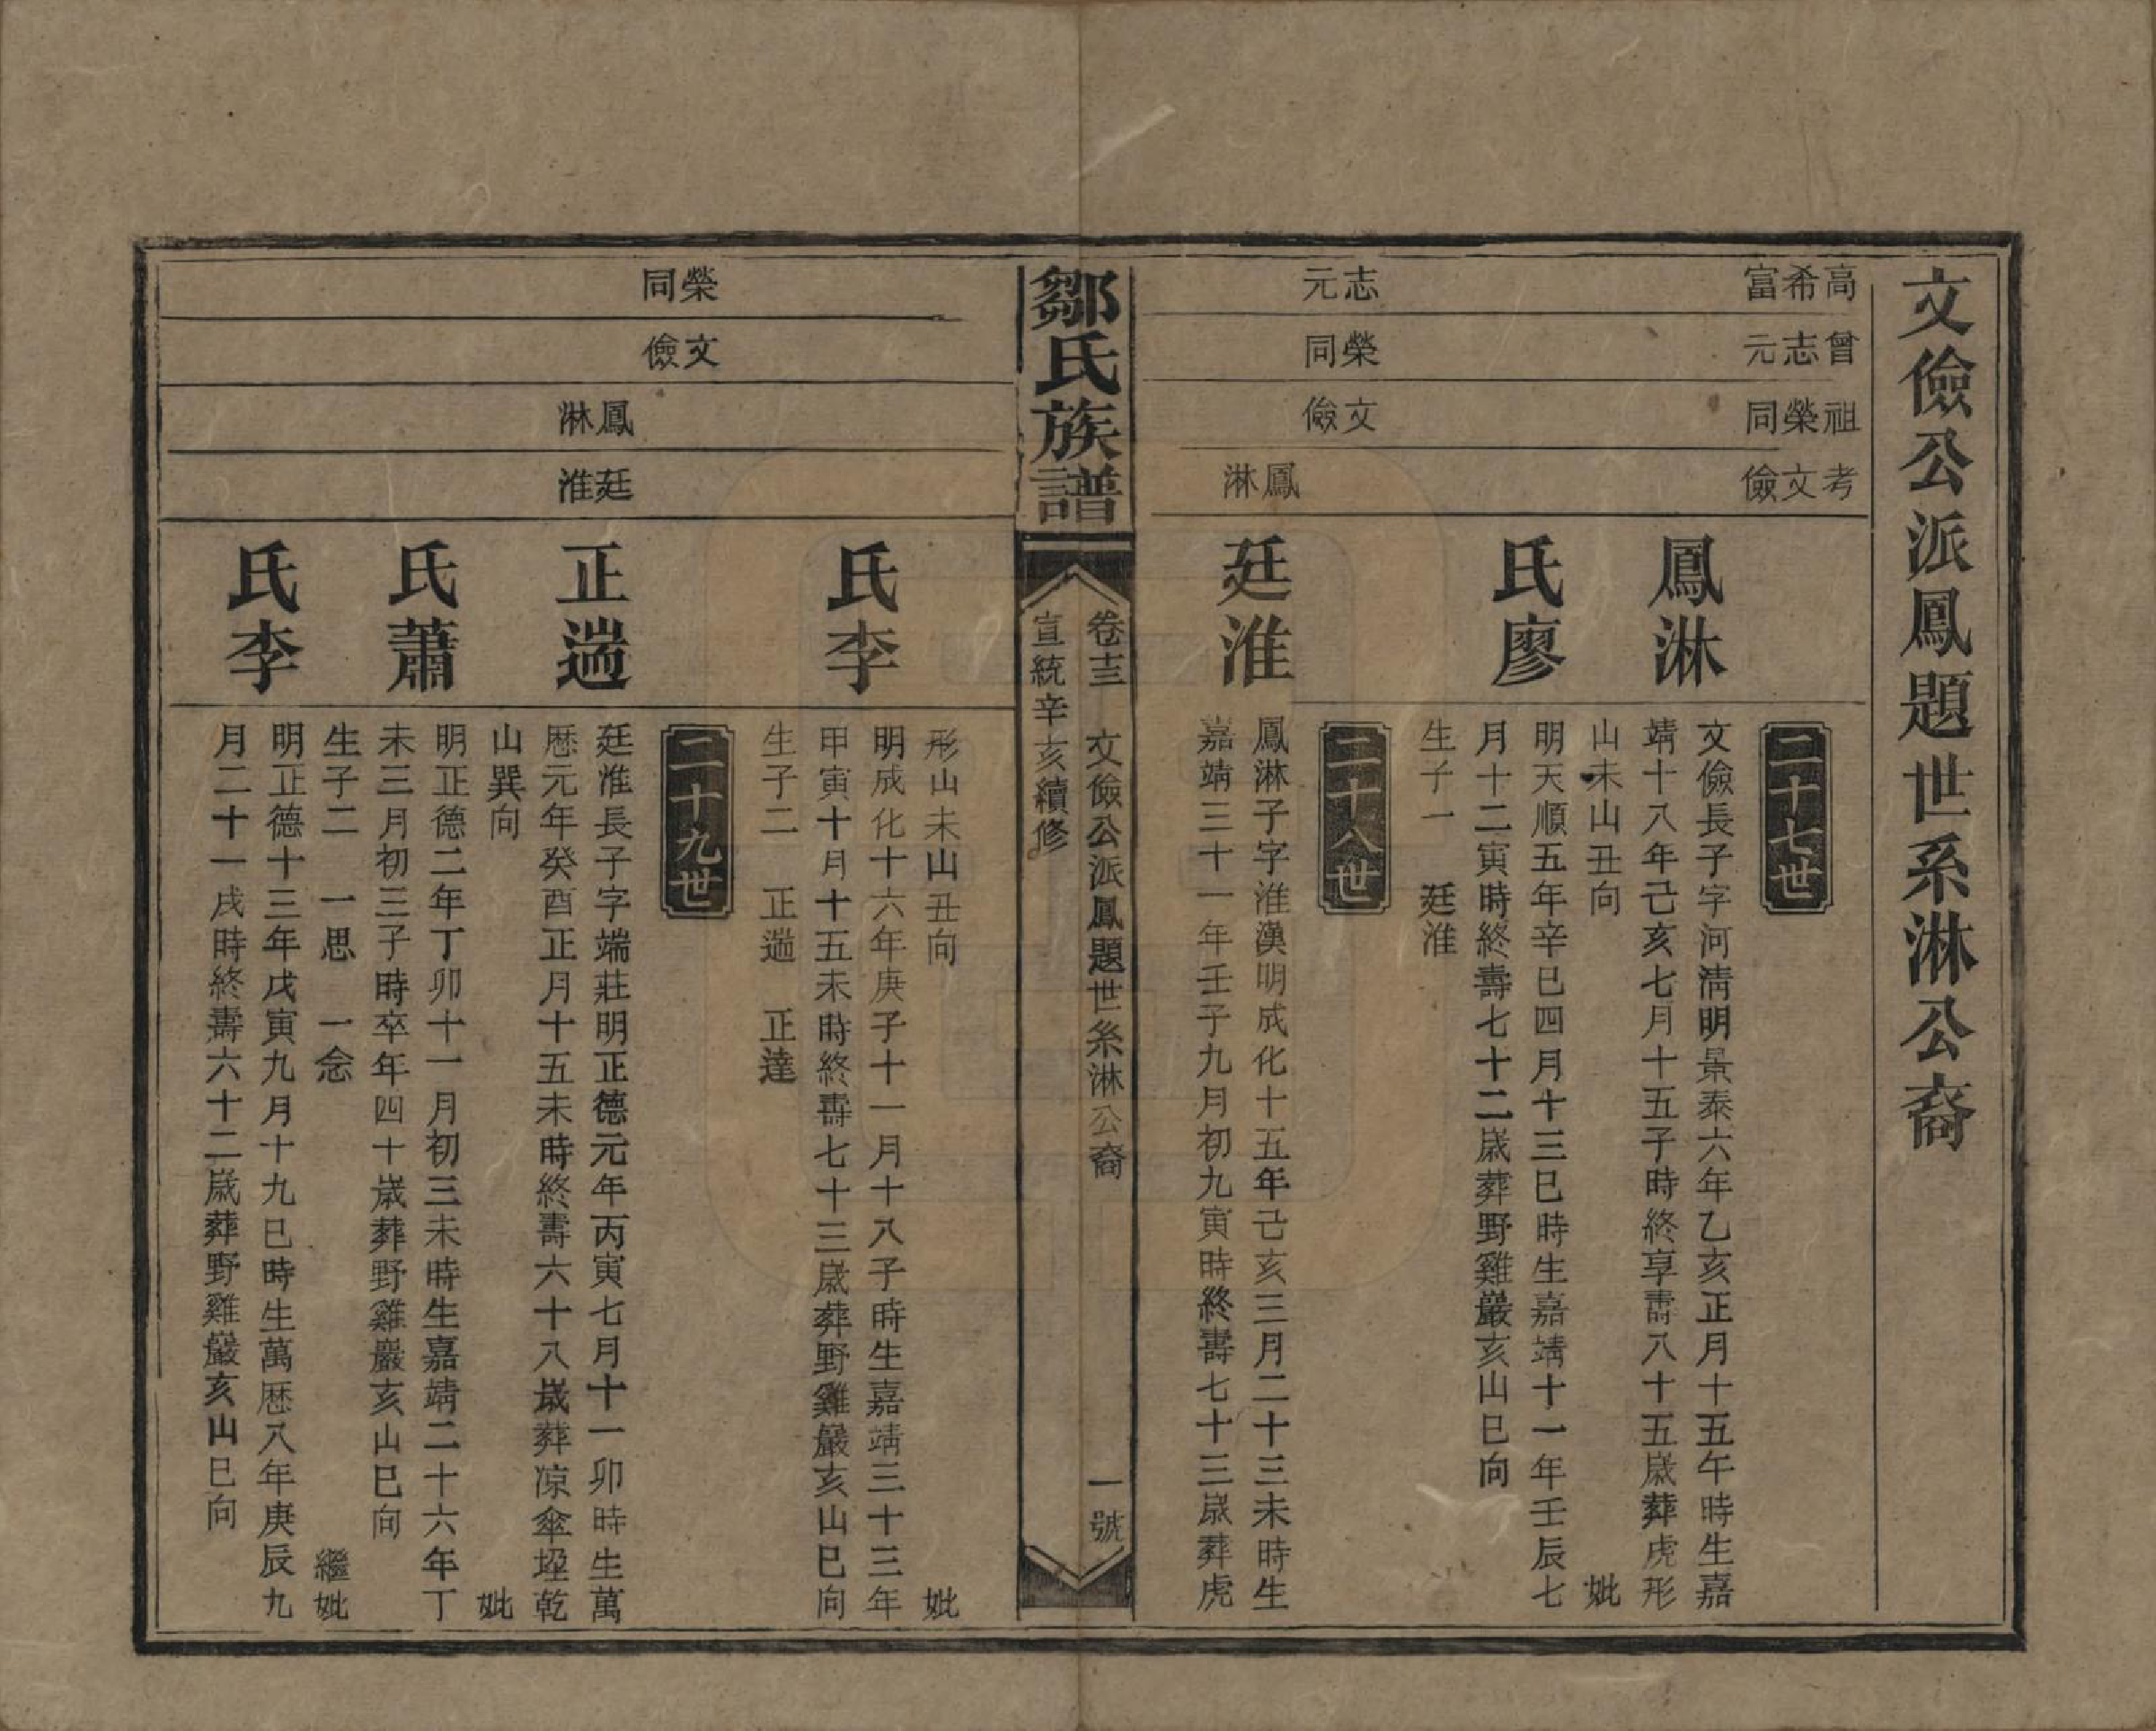 文儉公派鳳題世系淋公裔
高希富
曾志元
祖榮同
考文儉
二十七世
鳳淋
文儉長子字河淸明景泰六年乙亥正月十五午時生嘉
靖十八年己亥七月十五子時終享壽八十五歲葬虎形
山未山丑向 妣
氏廖
明天順五年辛巳四月十三巳時生嘉靖十一年壬辰七
月十二寅時終壽七十二歲葬野雞巖亥山巳向
生子一 廷淮
志元
榮同
文儉
鳳淋
二十八世
廷淮
鳳淋子字淮漢明成化十五年己亥三月二十三未時生
嘉靖三十一年壬子九月初九寅時終壽七十三歲葬虎
鄒氏族譜
卷十三 文儉公派鳳題世系淋公裔 一號
宣統辛亥續修
形山未山丑向 妣
氏李
明成化十六年庚子十一月十八子時生嘉靖三十三年
甲寅十月十五未時終壽七十三歲葬野雞巖亥山巳向
生子二 正遄 正達
榮同
文儉
鳳淋
廷淮
二十九世
正遄
廷淮長子字端莊明正德元年丙寅七月十一卯時生萬
歷元年癸酉正月十五未時終壽六十八歲葬凉傘坖乾
山巽向 妣
氏蕭
明正德二年丁卯十一月初三未時生嘉靖二十六年丁
未三月初三子時卒年四十歲葬野雞巖亥山巳向
生子二 一思 一念 繼妣
氏李
明正德十三年戊寅九月十九巳時生萬歷八年庚辰九
月二十一戌時終壽六十二歲葬野雞巖亥山巳向